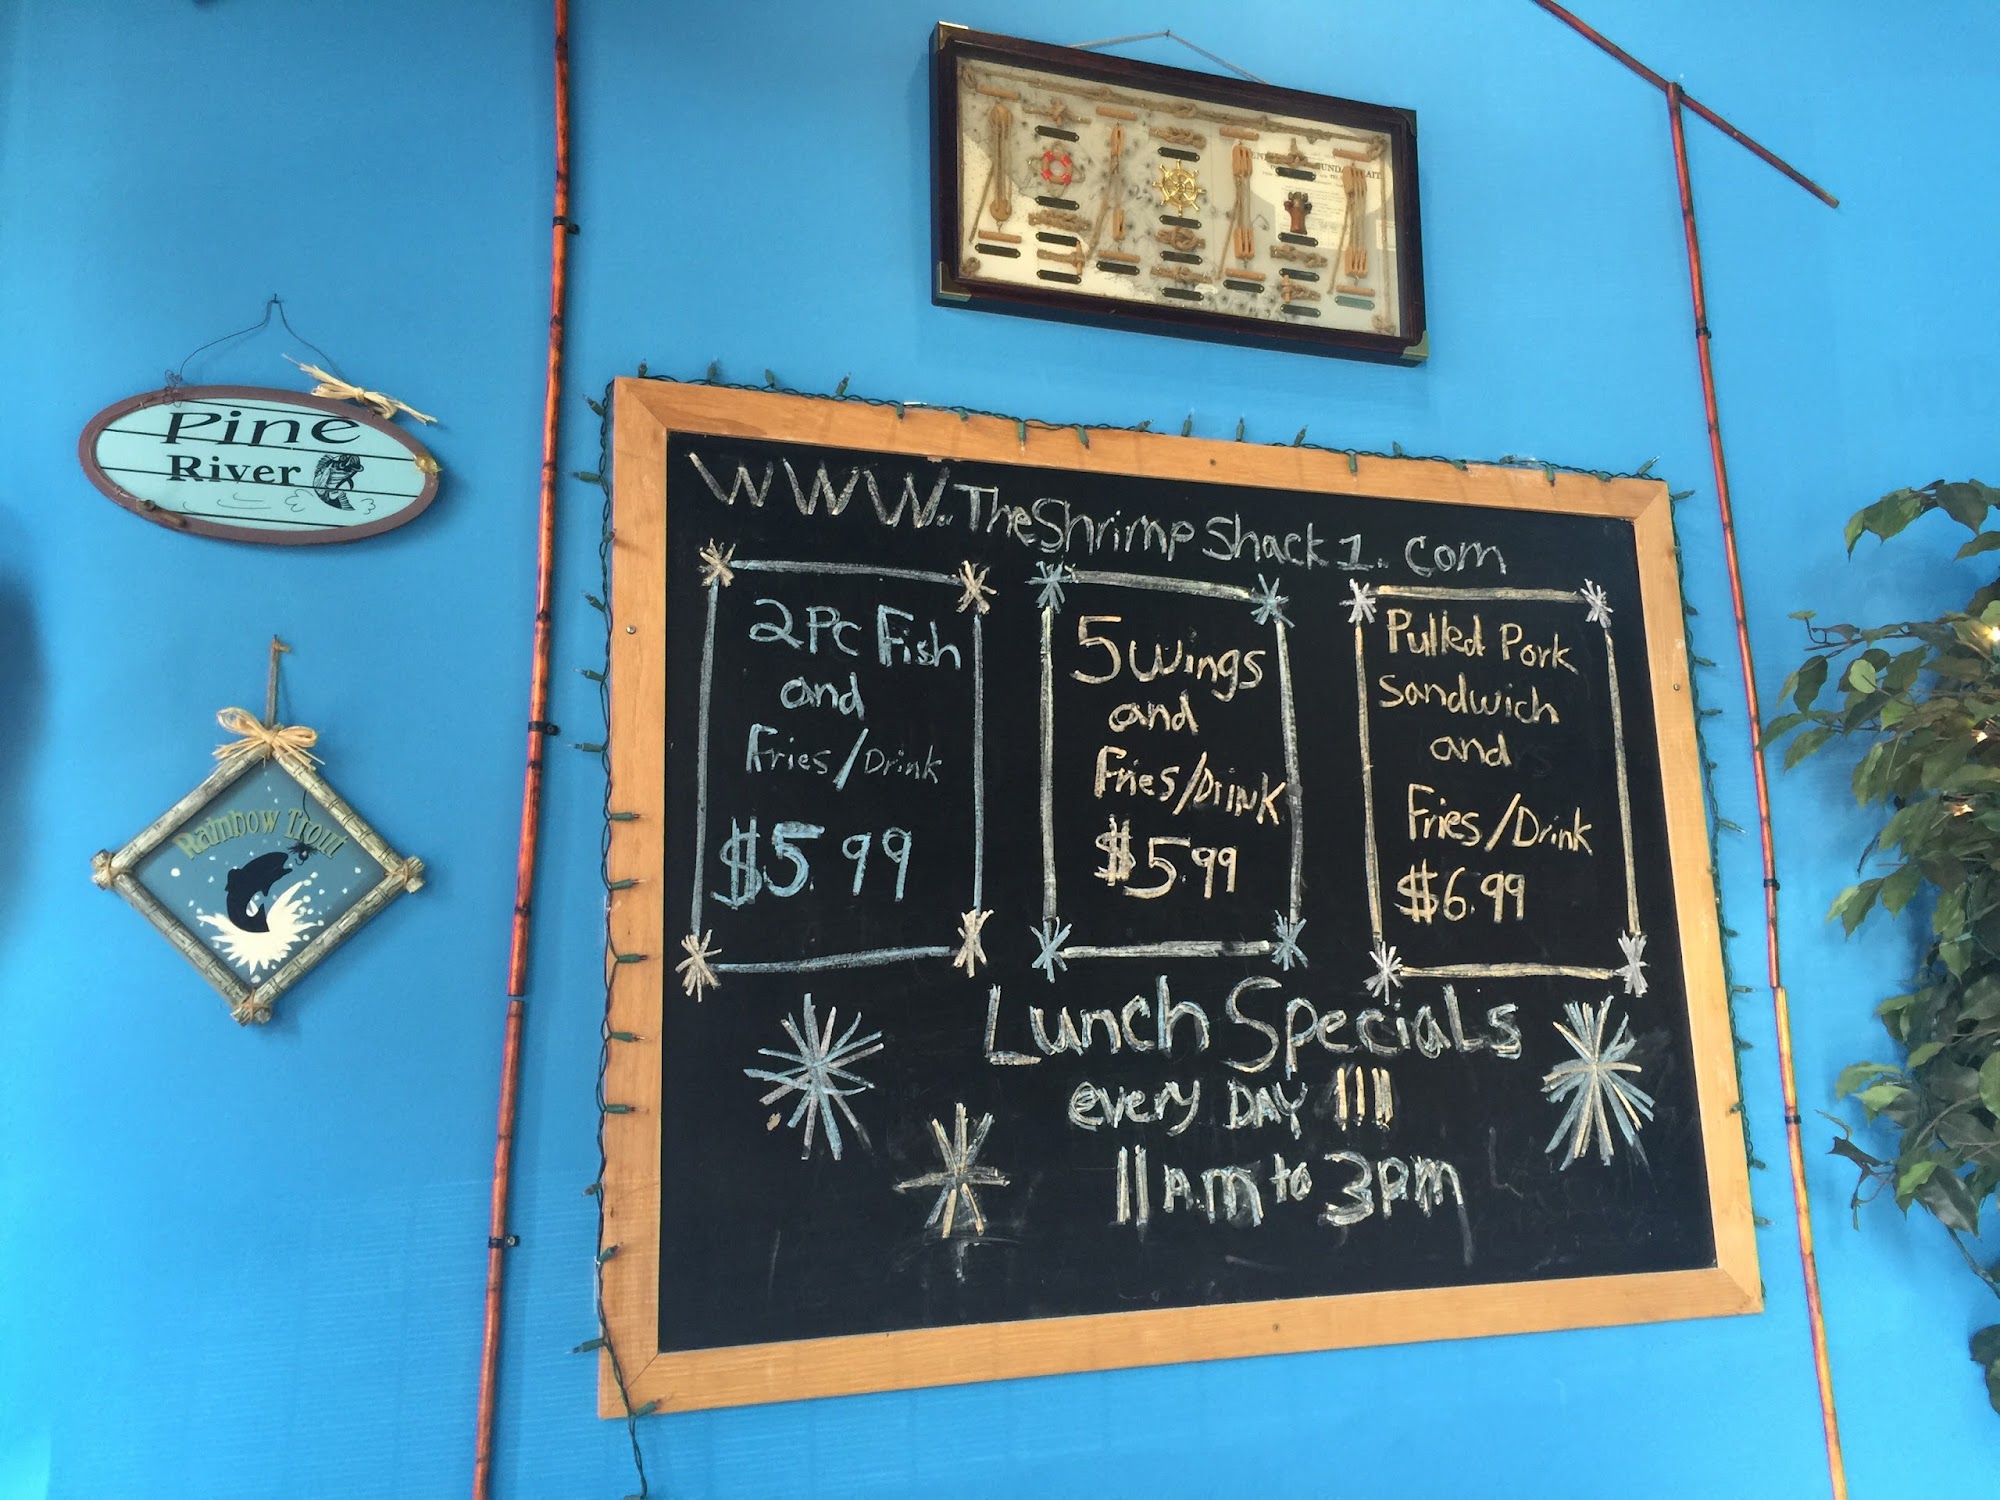 Pine
River
Rainbow Trout
www.TheShrimpShack1.com
2PC Fish
and
Fries/Drink
$5.99
5 Wings
and
Fries/Drink
$5.99
Pulled Pork
Sandwich
and
Fries/Drink
$6.99
Lunch Specials
every DAY !!!!
11am to 3pm